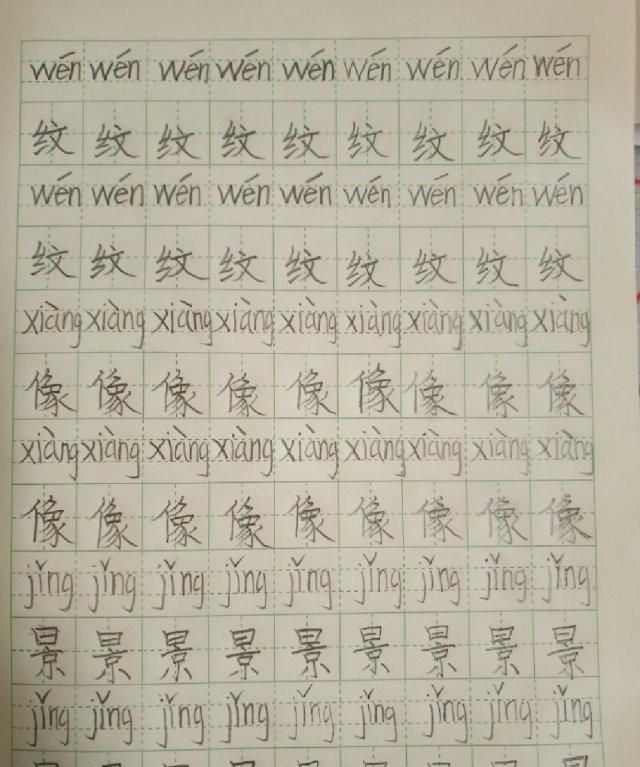 wén wén wén wén wén wén wén wén wén
纹 纹 纹 纹 纹 纹 纹 纹 纹
wén wén wén wén wén wén wén wén wén
纹 纹 纹 纹 纹 纹 纹 纹 纹
xiàng xiàng xiàng xiàng xiàng xiàng xiàng xiàng xiàng
像 像 像 像 像 像 像 像 像
xiàng xiàng xiàng xiàng xiàng xiàng xiàng xiàng xiàng
像 像 像 像 像 像 像 像 像
jǐng jǐng jǐng jǐng jǐng jǐng jǐng jǐng jǐng
景 景 景 景 景 景 景 景 景
jǐng jǐng jǐng jǐng jǐng jǐng jǐng jǐng jǐng